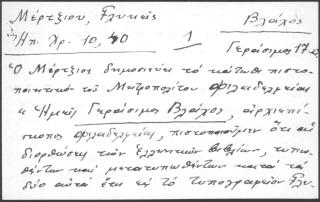 Μέρτζιου, Γλυκεῖς
Βλάχος
Ηπ. Χρ. 10, 40
1
Γεράσιμος 17
Ὁ Μέρτζιος δημοσιεύει τὸ κάτωθι πιστο-
ποιητικὸ τοῦ Μητροπολίτου Φιλαδελφείας
« Ἡμεῖς Γεράσιμος Βλάχος, ἀρχιεπί-
σκοπος Φιλαδελφείας, πιστοποιοῦμεν ὅτι αἱ
διορθώσεις τῶν Ἑλληνικῶν βιβλίων, τυπω-
θέντων καὶ μετατυπωθέντων κατὰ τὰ
δύο αὐτὰ ἔτη εἰς τὸ τυπογραφεῖον Γλυ-